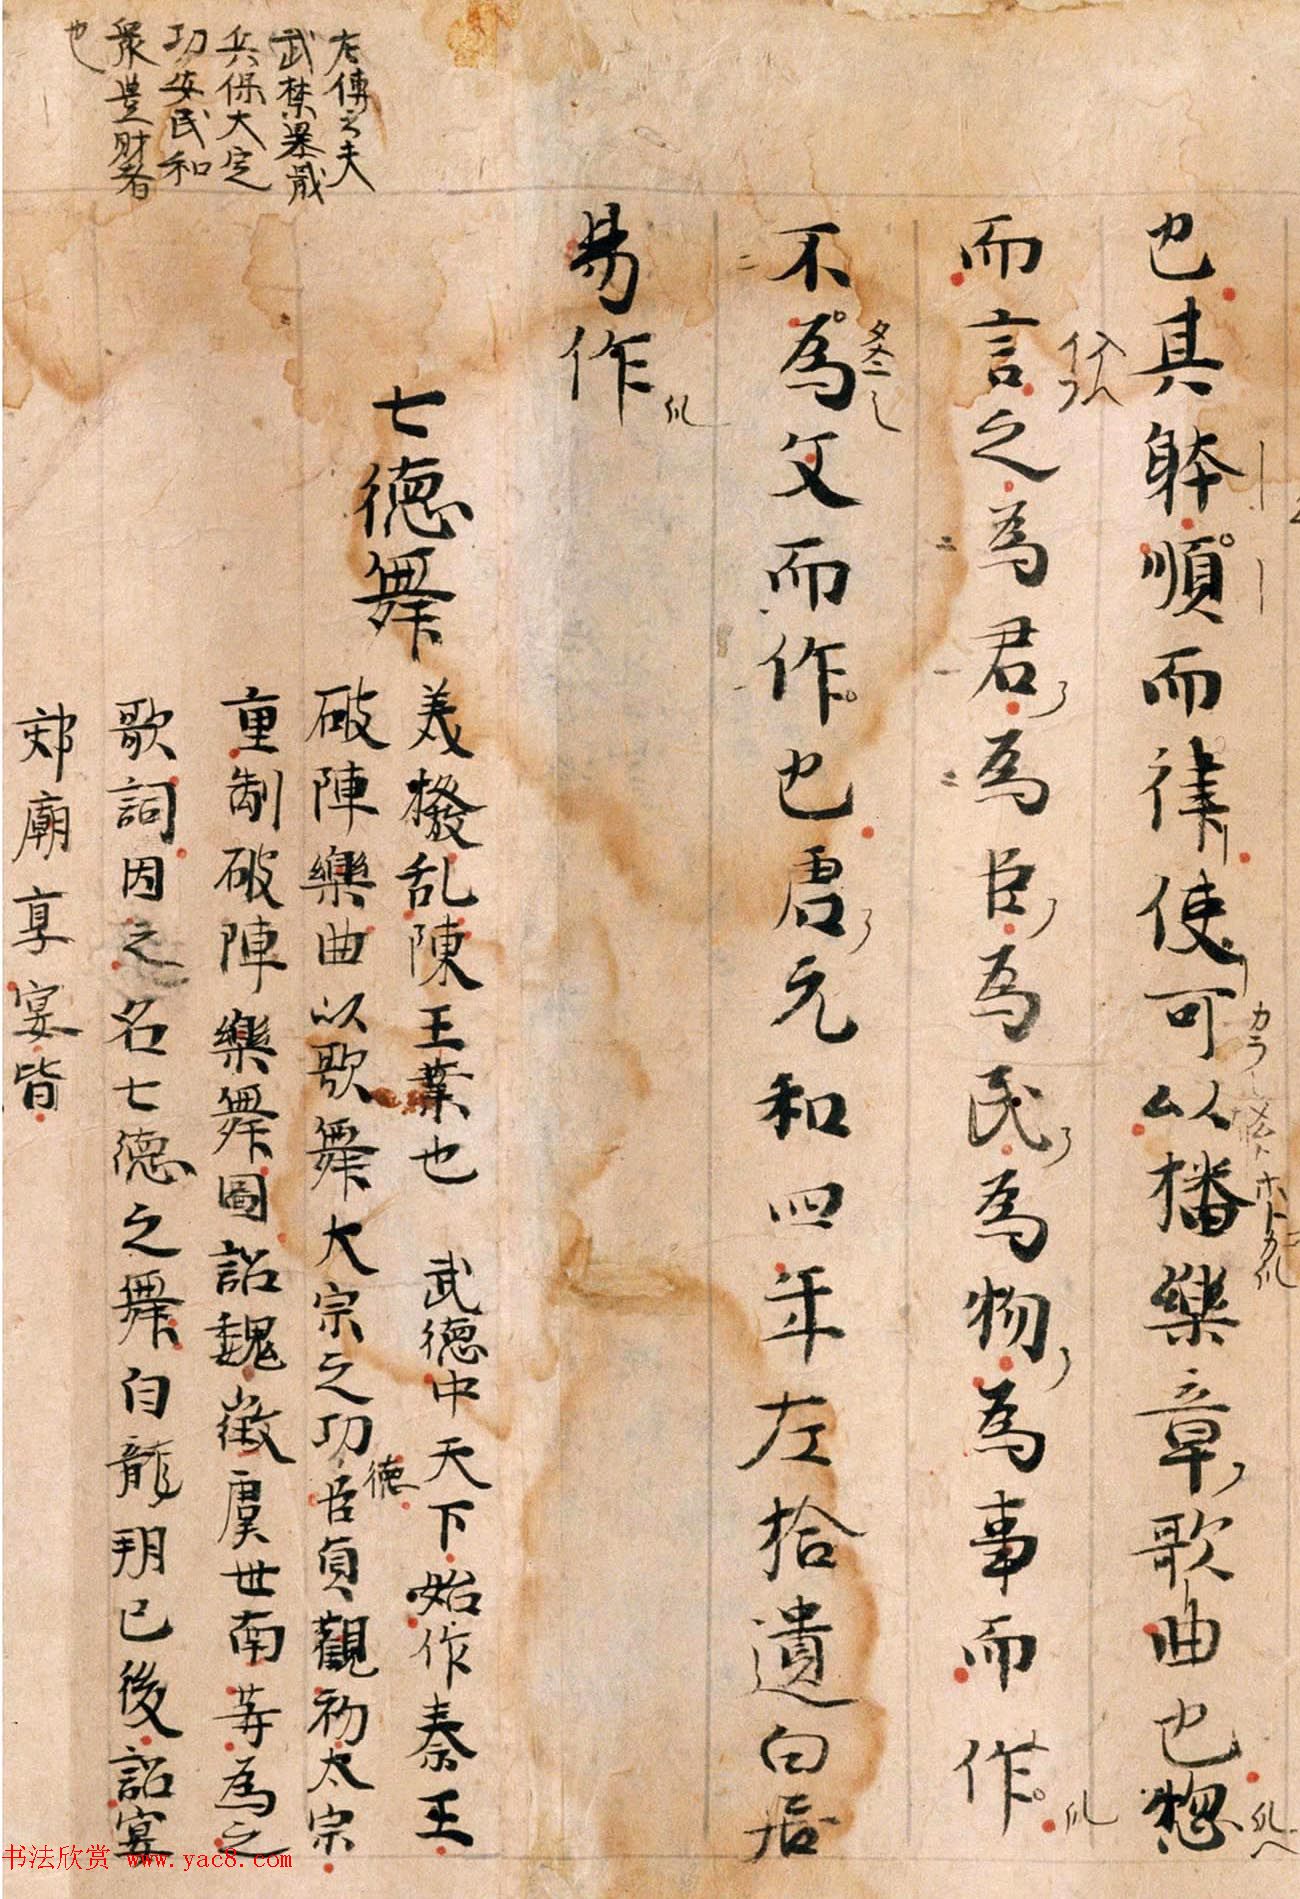 也其躰順而律使可以播樂章歌曲也惣
而言之為君為臣為民為物為事而作
不為文而作也唐元和四年左拾遺白居
易作
七德舞
美撥乱陳王業也 武德中天下始作秦王
破陣樂曲以歌舞大宗之功德臣貞觀初太宗
重制破陣樂舞圖詔魏徵虞世南等為之
歌詞因之名七德之舞自龍朔已後詔宴
郊廟享宴皆
左傳云夫
武禁暴戢
兵保大定
功安民和
衆豊財者
也
书法欣赏 www.yac8.com